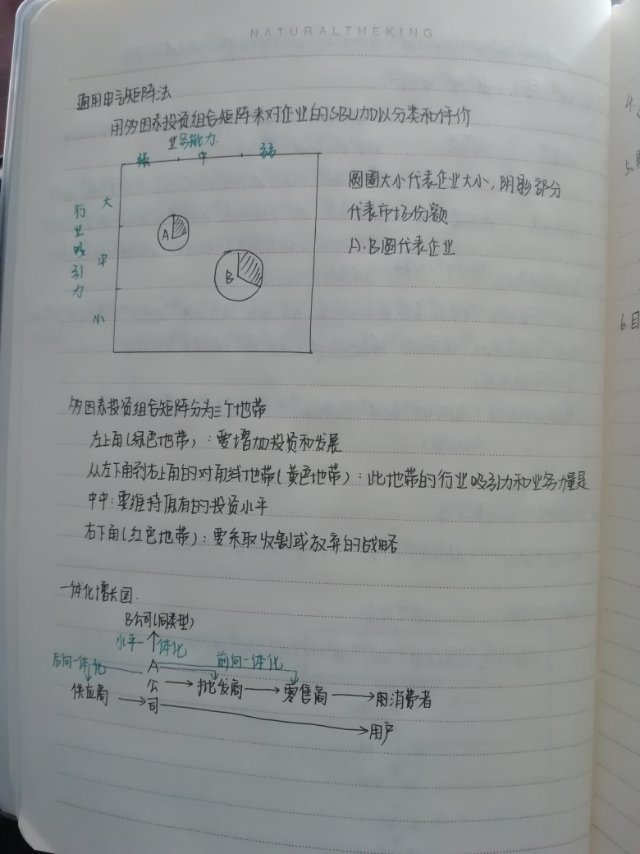 NATURALTHEKING
通用电气矩阵法
用多因素投资组合矩阵来对企业的SBU加以分类和评价
业务能力
强 中 弱
行业吸引力
大
中
小
A
B
圆圈大小代表企业大小,阴影部分
代表市场份额
A.B圆代表企业
多因素投资组合矩阵分为三个地带
左上角(绿色地带):要增加投资和发展
从左下角到右上角的对角线地带(黄色地带):此地带的行业吸引力和业务力量是
中中:要维持原有的投资水平
右下角(红色地带):要采取收割或放弃的战略
一体化增长图.
B公司(同类型)
水平一体化
后向一体化 A 前向一体化
供应商 公司 批发商 零售商 用消费者
用户
6.目